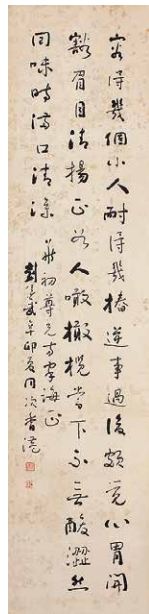 容得幾個小人耐得幾樁逆事過後頗覺心胷開
豁眉目清揚正如人噉橄欖當下不無酸澀然
回味時滿口清涼
初尊兄方家誨正
劉侯武辛卯夏同次香港